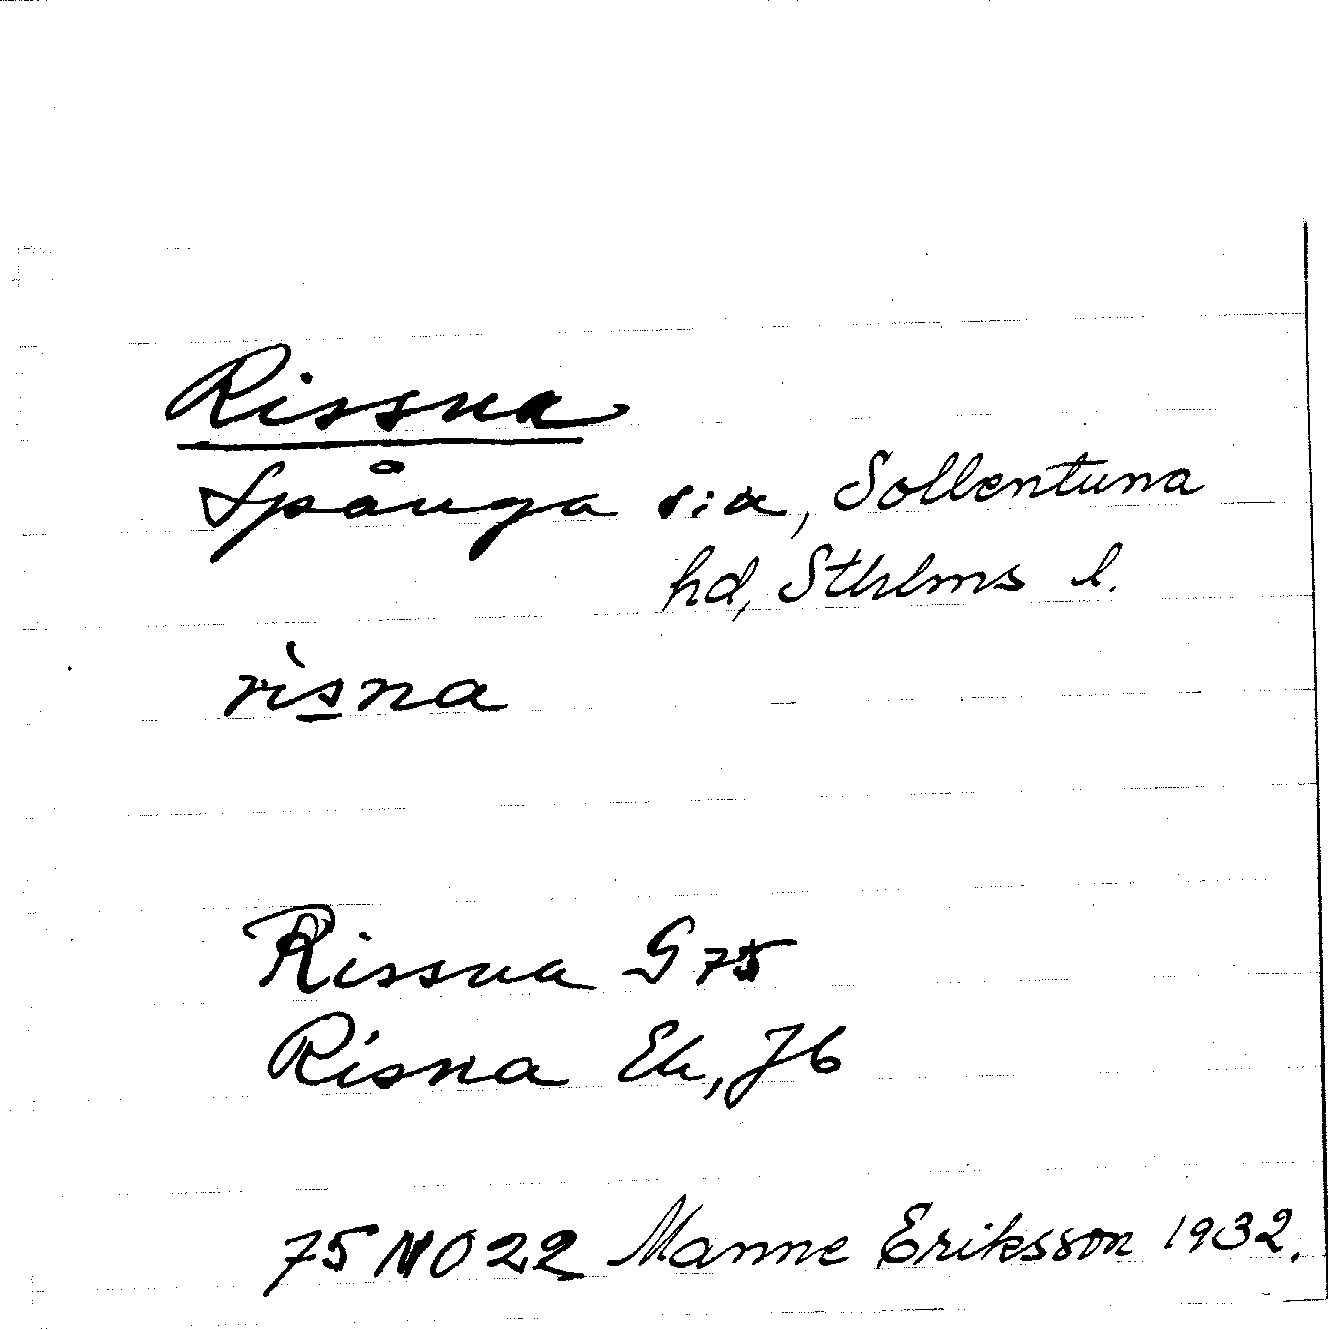 Rissna
Spånga s:a, Sollentuna
hd, Sthlms l.
rìsna
Rissna G 75
Risna Ek, Jb
75 NO 22 Manne Eriksson 1932.